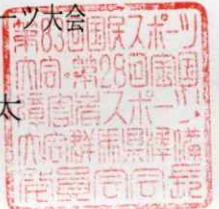 ーツ大会
太
第83回国民スポーツ
大会・第28回全国
障害者スポーツ
大会群馬県準備
委員会会長